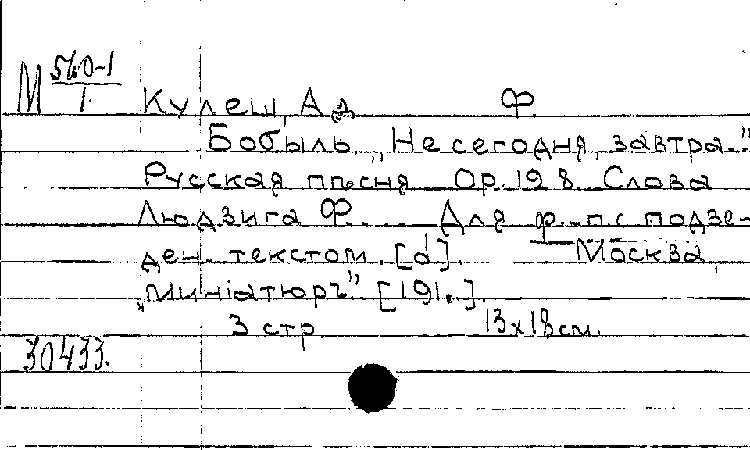 М 560-1/1
Кулеш, Ад. Ф.
Бобыль. „Не сегодня, завтра..."
Русская пѣсня Ор. 198. Слова
Людвига Ф. Для ф.-п. с подве-
ден. текстом. [d]. Москва,
„Миніатюръ" [191.].
3 стр 13x18 см.
30433.